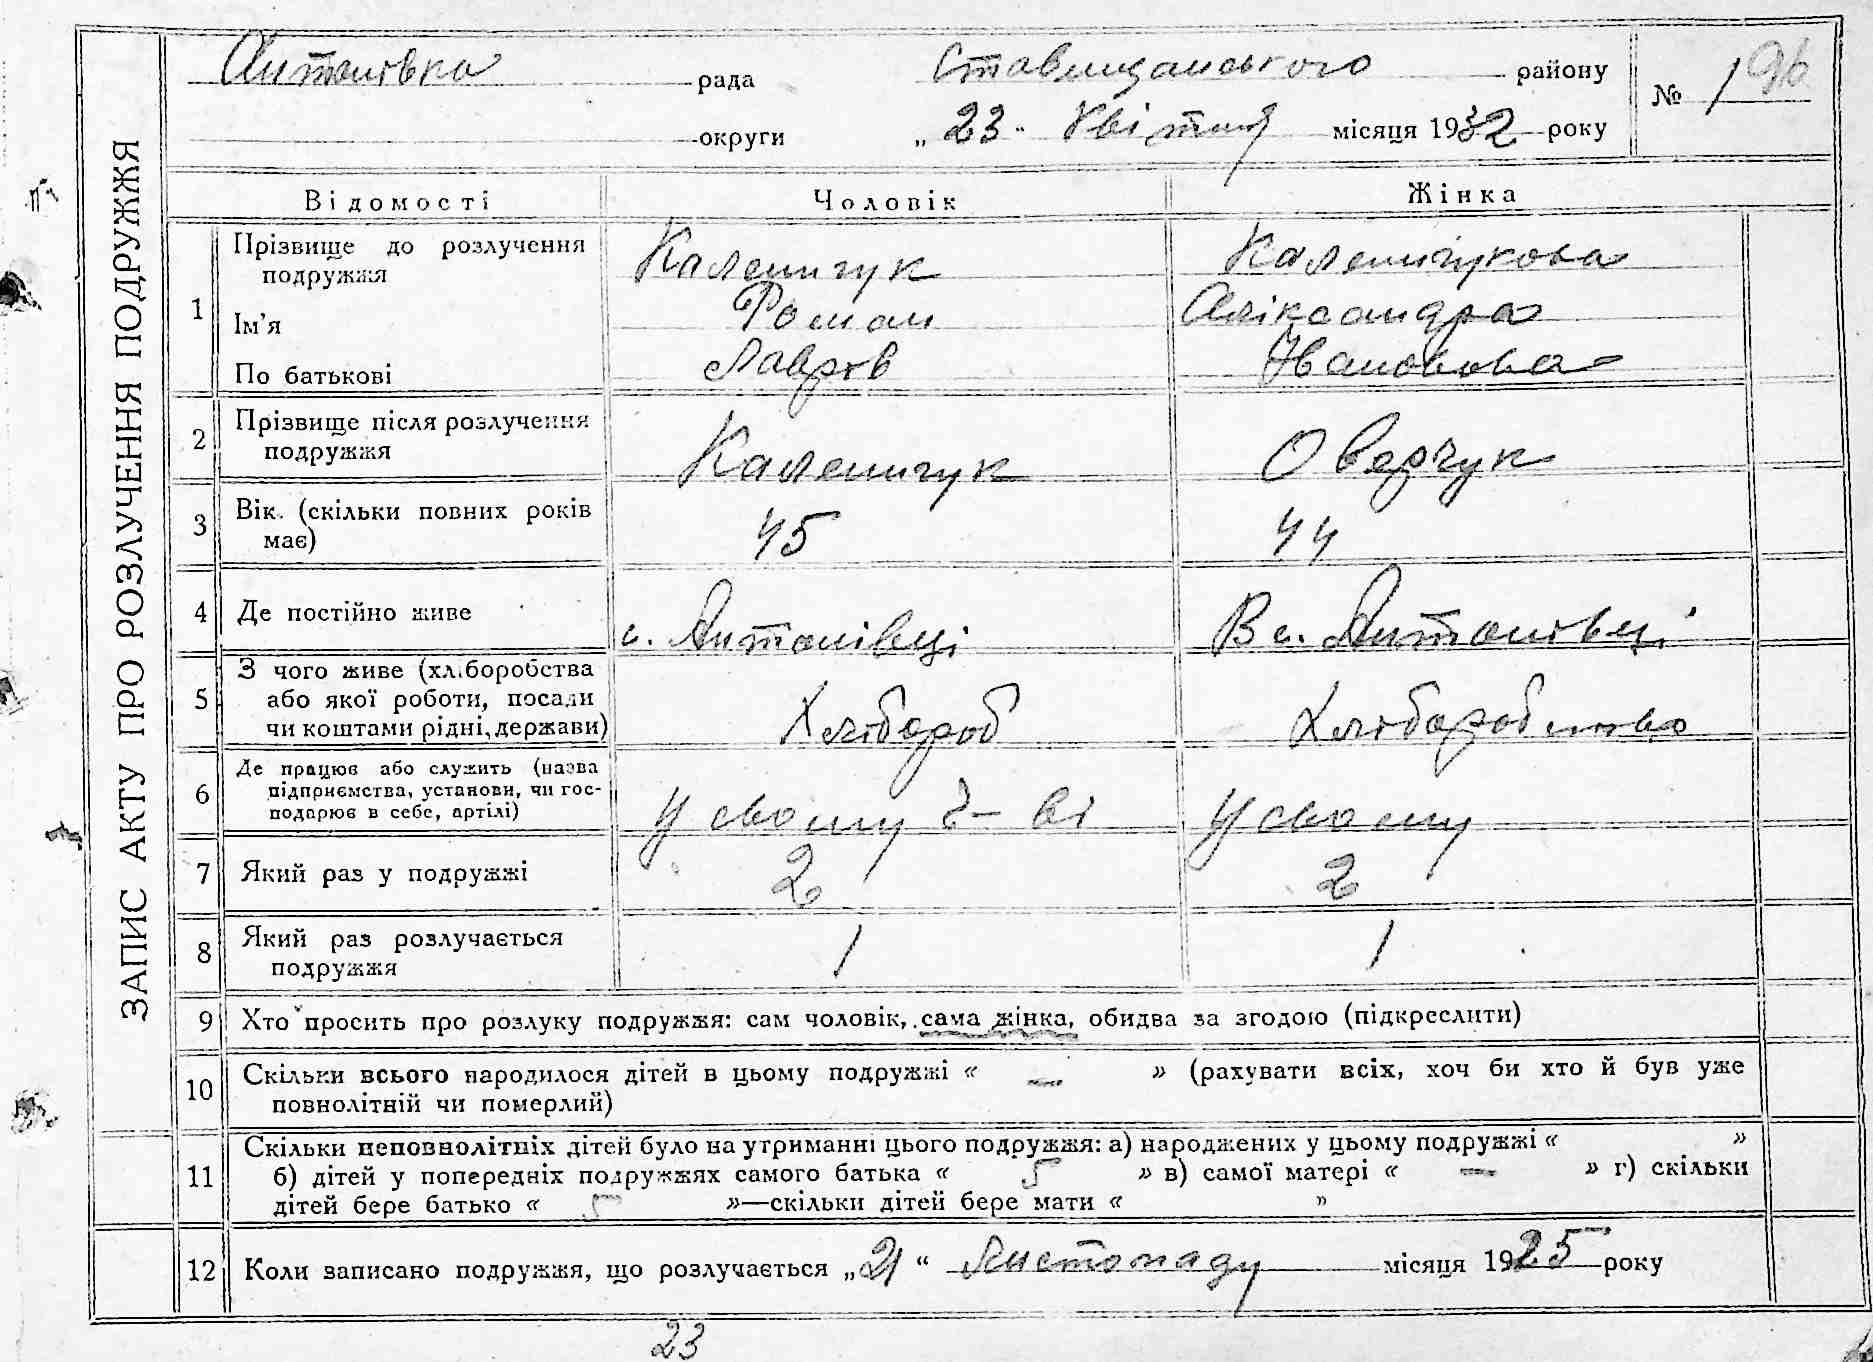 ЗАПИС АКТУ ПРО РОЗЛУЧЕННЯ ПОДРУЖЖЯ
Антонівка рада Ставищанського району № 1 96
округи „ 23 " Квітня місяця 1932 року
Відомості Чоловік Жінка
1 Прізвище до розлучення подружжя Каленичук Каленичукова
Ім'я Роман Аліксандра
По батькові Лавров Івановова
2 Прізвище після розлучення подружжя Каленичук Оверчук
3 Вік. (скільки повних років має) 45 44
4 Де постійно живе с. Антонівці В с. Антонівці
5 З чого живе (хліборобства або якої роботи, посади чи коштами рідні, держави) Хлібороб Хліборобство
6 Де працює або служить (назва підприємства, установи, чи господарює в себе, артілі) У свому г-ві У свому
7 Який раз у подружжі 2 2
8 Який раз розлучається подружжя 1 1
9 Хто просить про розлуку подружжя: сам чоловік, сама жінка, обидва за згодою (підкреслити)
10 Скільки всього народилося дітей в цьому подружжі « — » (рахувати всіх, хоч би хто й був уже
повнолітній чи померлий)
11 Скільки неповнолітніх дітей було на утриманні цього подружжя: а) народжених у цьому подружжі « »
б) дітей у попередніх подружжях самого батька « 5 » в) самої матері « — » г) скільки
дітей бере батько « 5 »—скільки дітей бере мати « »
12 Коли записано подружжя, що розлучається „21“ Листопаду місяця 1925 року
23